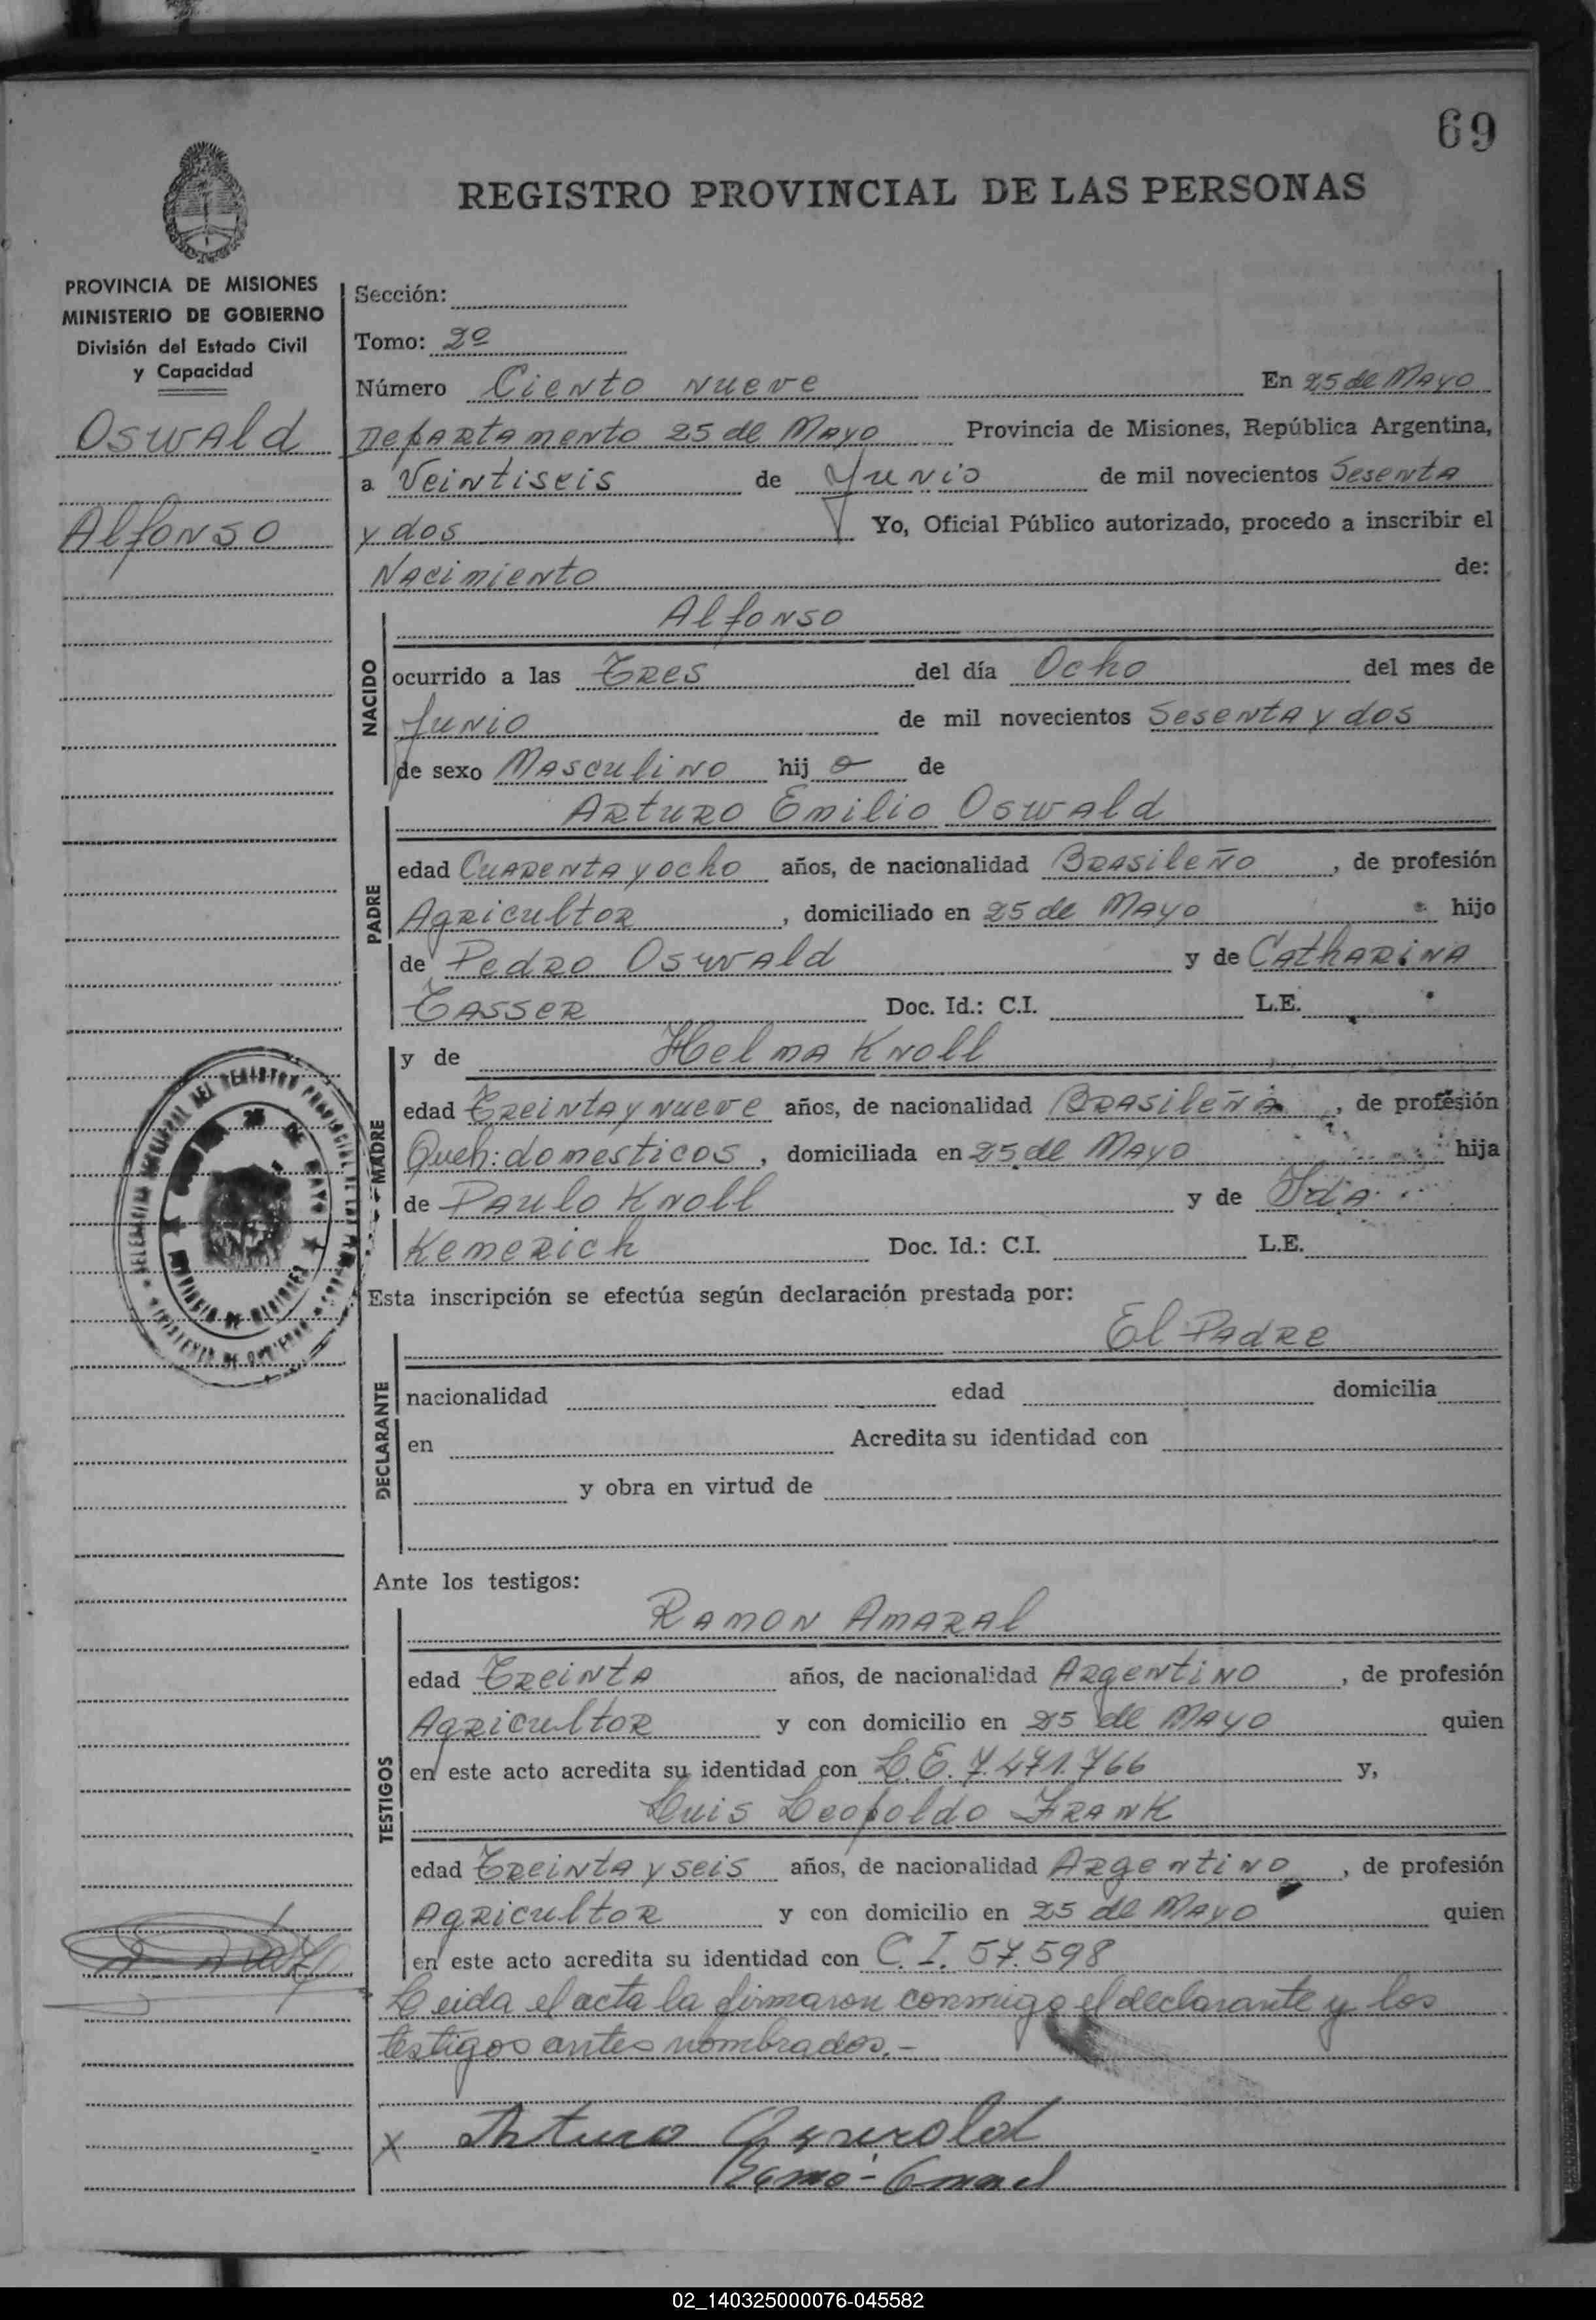 69
REGISTRO PROVINCIAL DE LAS PERSONAS
PROVINCIA DE MISIONES
MINISTERIO DE GOBIERNO
División del Estado Civil
y Capacidad
Oswald
Alfonso
Sección:
Tomo: 2º
Número Ciento nueve En 25 de Mayo
Departamento 25 de Mayo Provincia de Misiones, República Argentina,
a Veintiseis de Junio de mil novecientos Sesenta
y dos Yo, Oficial Público autorizado, procedo a inscribir el
Nacimiento de:
NACIDO
Alfonso
ocurrido a las Tres del día Ocho del mes de
Junio de mil novecientos Sesenta y dos
de sexo Masculino hij o de
PADRE
Arturo Emilio Oswald
edad Cuarenta y ocho años, de nacionalidad Brasileño, de profesión
Agricultor, domiciliado en 25 de Mayo hijo
de Pedro Oswald y de Catharina
Tasser Doc. Id.: C.I. L.E.
MADRE
y de Helma Knoll
edad Treinta y nueve años, de nacionalidad Brasileña, de profesión
Queh: domesticos, domiciliada en 25 de Mayo hija
de Paulo Knoll y de Ida
Kemerich Doc. Id.: C.I. L.E.
Esta inscripción se efectúa según declaración prestada por:
DECLARANTE
El Padre
nacionalidad edad domicilia
en Acredita su identidad con
y obra en virtud de
Ante los testigos:
TESTIGOS
Ramon Amaral
edad Treinta años, de nacionalidad Argentino, de profesión
Agricultor y con domicilio en 25 de Mayo quien
en este acto acredita su identidad con L.E. 7.471.766 y,
Luis Leopoldo Frank
edad Treinta y seis años, de nacionalidad Argentino, de profesión
Agricultor y con domicilio en 25 de Mayo quien
en este acto acredita su identidad con C.I. 57.598
Leida el acta la firmaron conmigo el declarante y los
testigos antes nombrados.-
x Arturo Oswald
02_140325000076-045582